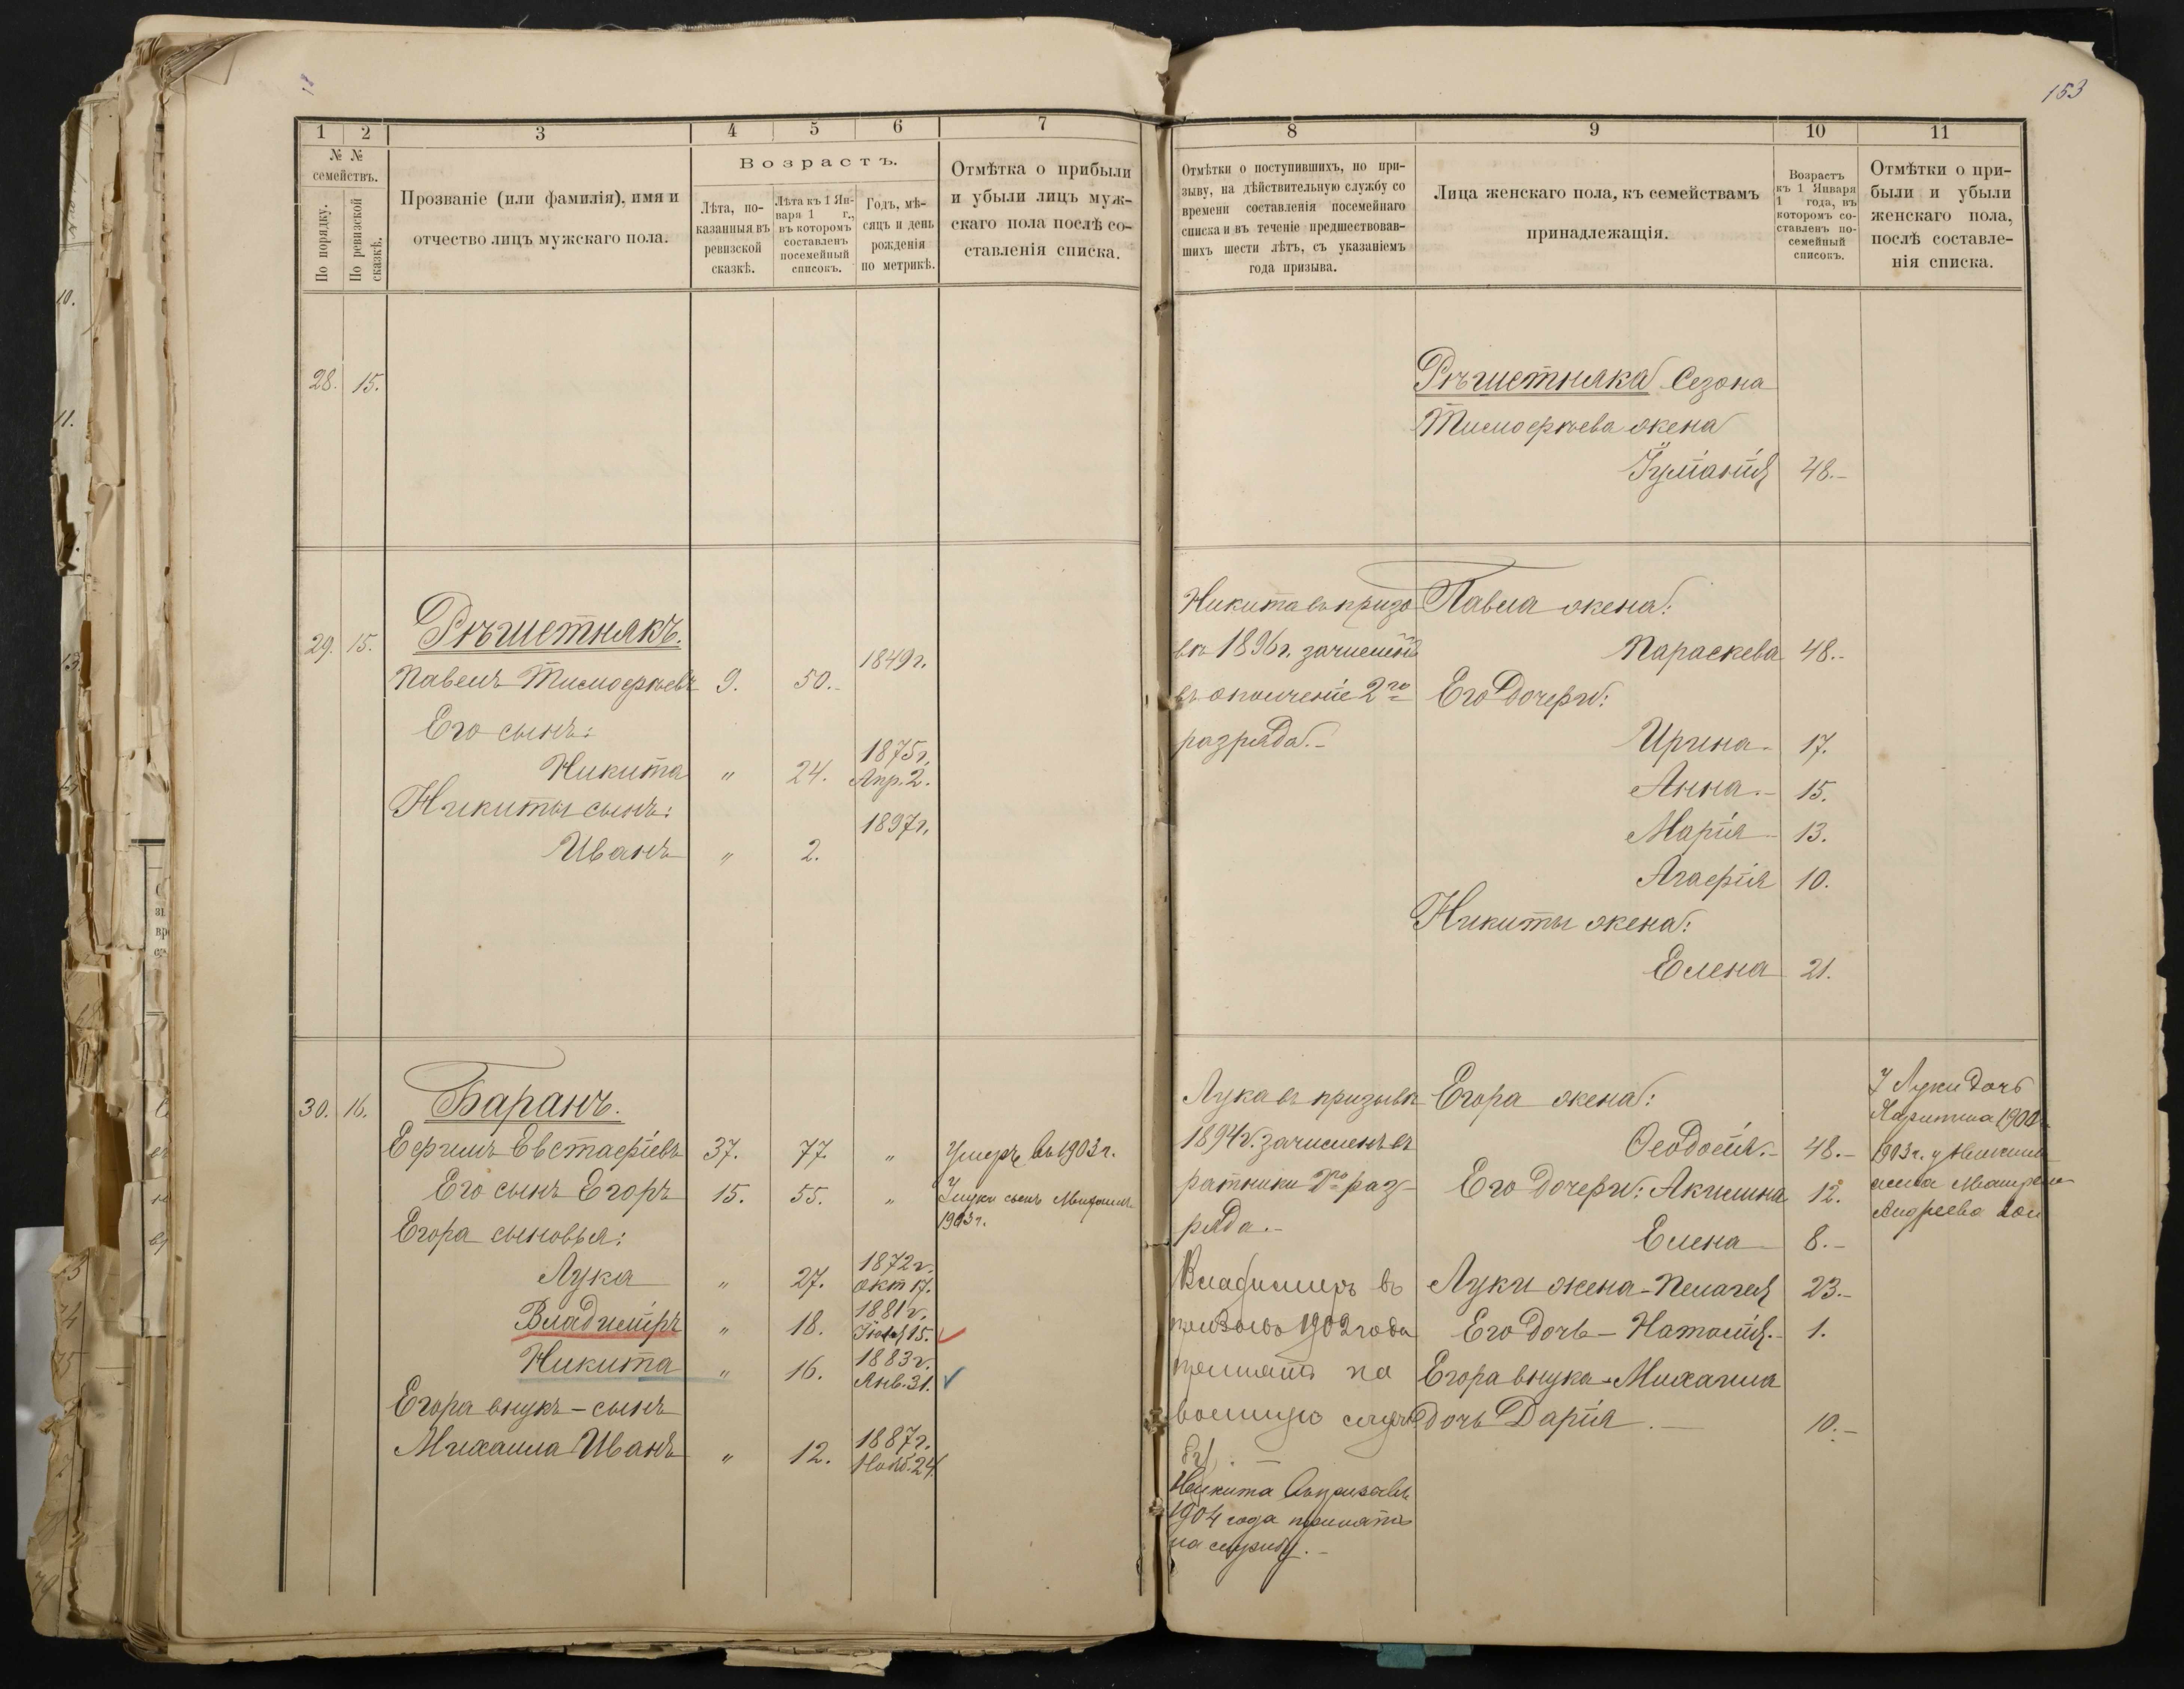 153
1 2 3 4 5 6 7
№ №
семействъ.
По порядку.
По ревизской сказкѣ.
Прозваніе (или фамилія), имя и
отчество лицъ мужскаго пола.
Возрастъ.
Лѣта, по-
казанныя въ
ревизской
сказкѣ.
Лѣта къ 1 Ян-
варя 1 г.,
въ которомъ
составленъ
посемейный
списокъ.
Годъ, мѣ-
сяцъ и день
рожденія
по метрикѣ.
Отмѣтка о прибыли
и убыли лицъ муж-
скаго пола послѣ со-
ставленія списка.
28. 15.
29. 15. Рѣшетнякъ.
Павелъ Тимоѳеевъ 9. 50. 1849 г.
Его сынъ:
Никита " 24. 1875 г.
Апр. 2.
Никиты сынъ:
Иванъ " 2. 1897 г.
30. 16. Баранъ.
Ефимъ Евстафіевъ 37. 77. " Умеръ въ 1903 г.
Его сынъ Егоръ 15. 55. " У Луки сынъ
1903 г.
Егора сыновья:
Лука " 27. 1872 г.
Окт 17.
Владиміръ " 18. 1881 г.
15.
Никита " 16. 1883 г.
Янв. 31.
Егора внукъ – сынъ
Михаила Иванъ " 12. 1887 г.
Нояб. 24.
8 9 10 11
Отмѣтки о поступившихъ, по при-
зыву, на дѣйствительную службу со
времени составленія посемейнаго
списка и въ теченіе предшествовав-
шихъ шести лѣтъ, съ указаніемъ
года призыва.
Лица женскаго пола, къ семействамъ
принадлежащія.
Возрастъ
къ 1 Января
1 года, въ
которомъ со-
ставленъ по-
семейный
списокъ.
Отмѣтки о при-
были и убыли
женскаго пола,
послѣ составле-
нія списка.
Рѣшетняка
Тимоѳеева жена
48.
Никита въ призо
въ 1896 г. зачисленъ
въ ополченіе 2го
разряда.
Павла жена:
Параскева 48.
Его дочери:
Ирина 17.
Анна. 15.
Марія 13.
Агафія 10.
Никиты жена:
Елена 21.
Лука въ призывъ
1894 г. зачисленъ въ
ратники 2го раз-
ряда.
Владимиръ въ
призывъ 1902 года
принятъ на
военную службу
Никита въ призывъ
1904 года принятъ
на службу.
Егора жена:
Ѳеодосія. 48.
Его дочери: Акилина 12.
Елена 8.
Луки жена – Пелагея 23.
Его дочь – Наталія. 1.
Егора внука – Михаила
дочь Дарія. 10.
У Луки дочь
1900
1903 г. у Никиты
жена
Андреева